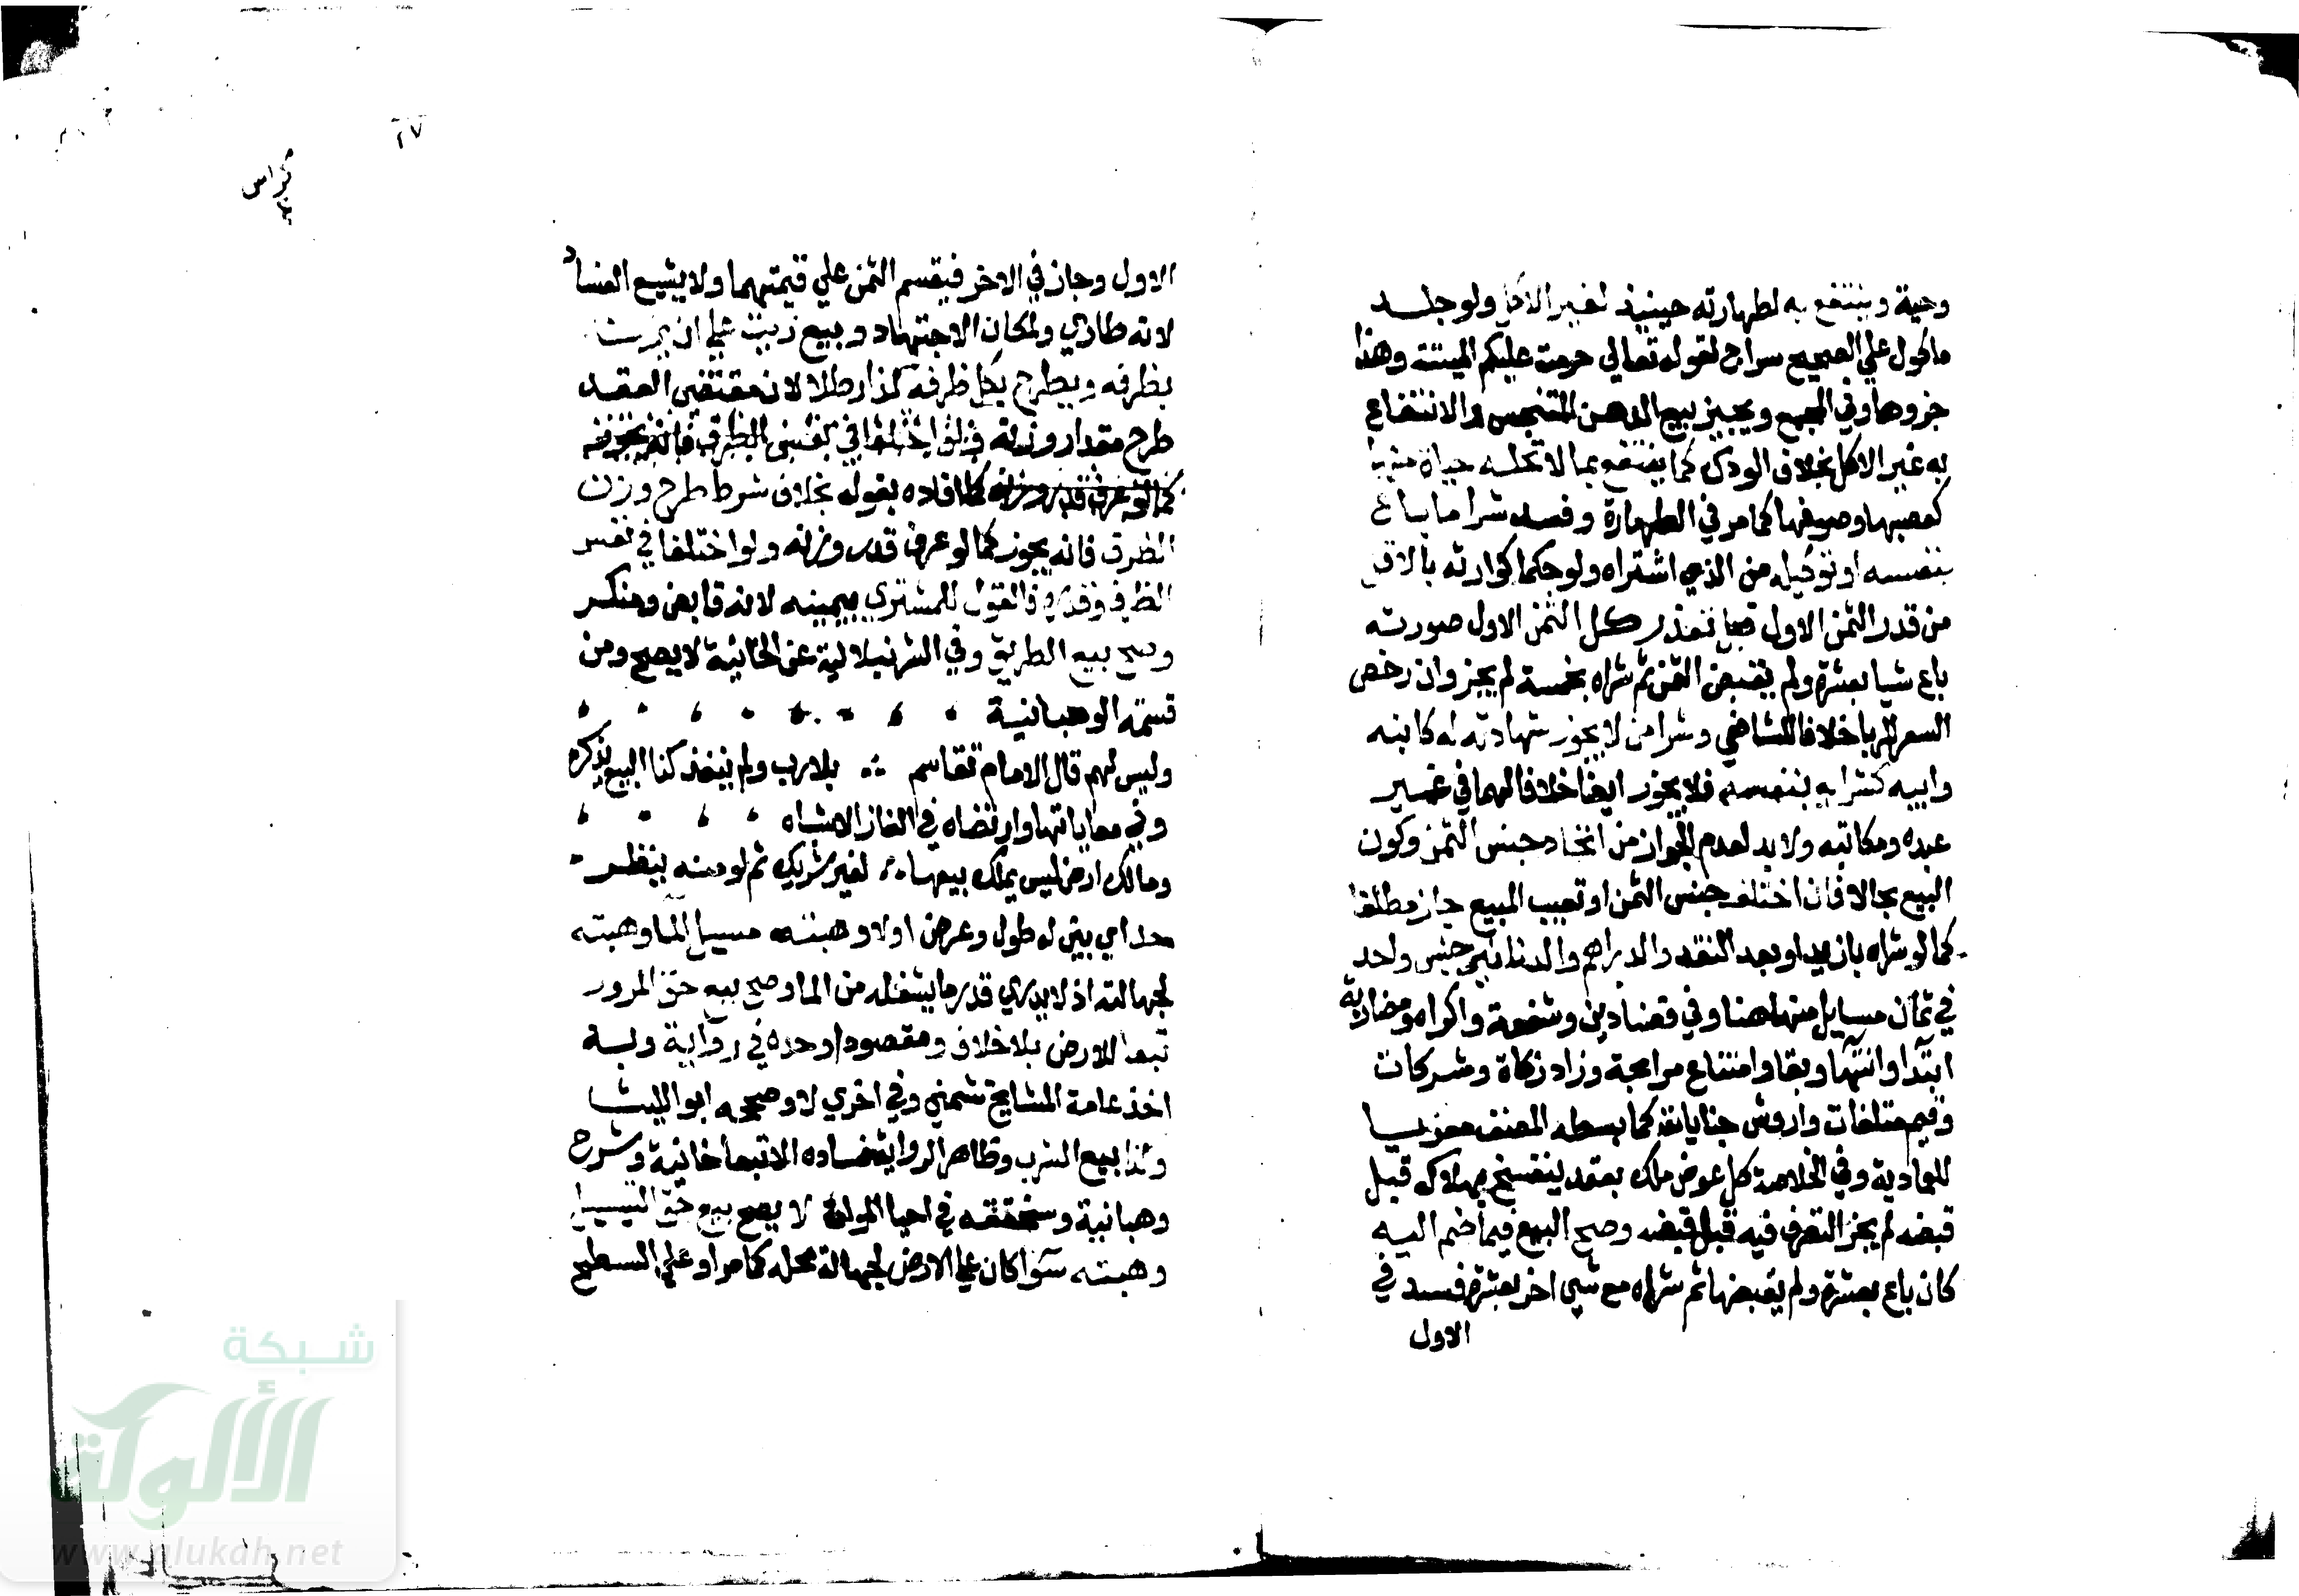 وحية وينتفع به لطهارته حينيذ لغير الاكل ولو جلد
ماكول علي الصحيح سراج لقوله تعالي حرمت عليكم الميتة وهذا
جزوها وفي المجمع ويجيز بيع الدهن المتنجس والانتفاع
به غير الاكل بخلاف الودك كما ينتفع بما لا تحله حياة منها
كعصبها وصوفها كما مر في الطهارة وفسد شرا ما باع
بنفسه او توكيله من الذي اشتراه ولو حكما كوارثه بالاقل
من قدر الثمن الاول قبل نقد كل الثمن الاول صورته
باع شيا بعشرة ولم يقبض الثمن ثم شراه بخمسة لم يجز وان رخص
السعر للربا خلافا للشافعي وشرا من لا يجوز شهادته له كابنه
وابيه كشرايه بنفسه فلا يجوز ايضا خلافا لهما في غير
عبده ومكاتبه ولا بد لعدم الجواز من اتحاد جنس الثمن وكون
البيع بحاله فان اختلف جنس الثمن او تعيب المبيع جاز مطلقا
كما لو شراه بازيد او بعد النقد والدراهم والدنانير جنس واحد
في ثمان مسايل منها هنا وفي قضا دين وشفعة واكراه ومضاربة
ابتدا وانتها وبقا وامتناع مرابحة وزاد زكاة وشركات
وقيم متلفات واروش جنايات كما بسطه المصنف معزيا
للعمادية وفي الخلاصة كل عوض ملك بعقد ينفسخ بهلاكه قبل
قبضه لم يجز التصرف فيه قبل قبضه وصح البيع فيما ضم اليه
كان باع بعشرة ولم يقبضها ثم شراه مع شي اخر بعشرة فسد في
الاول
٢٧
كراس
الاول وجاز في الاخر فيقسم الثمن علي قيمتهما ولا يشيع الفساد
لانه طاري ولمكان الاجتهاد وبيع زيت علي ان يزنه
بظرفه ويطرح بكل ظرفه كذا رطلا لانه مقتضي العقد
طرح مقدار وزنه
كما افاده بقوله بخلاف شرط طرح وزن
الظرف فانه يجوز كما لو عرف قدر وزنه ولو اختلفا في نفس
الظرف وقدره فالقول للمشتري بيمينه لانه قابض ومنكر
وصح بيع الطريق وفي الشرنبلالية عن الخانية لا يصح ومن
قسمة الوهبانية
وليس لهم قال الامام تقاسم بلارب ولم ينفذ كذا البيع يذكره
وفي معاياتها وارتضاه في الغاز الاشباه
ومالك ارض ليس يملك بيعها لغير شريك ثم لو منه ينظر
حد اي بين له طول وعرض اولا وهبته مسيل الما وهبته
لجهالته اذ لا يدري قدر ما يشغله من الما وصح بيع حق المرور
تبعا للارض بلا خلاف ومقصودا وحده في رواية وبه
اخذ عامة المشايخ شمني وفي اخري لا وصححه ابو الليث
وكذا بيع الشرب وظاهر الرواية فساده الا تبعا خانية وشرح
وهبانية وسنحققه في احيا الموات لا يصح بيع حق التسييل
وهبته سوا كان علي الارض لجهالة محله كما مر او علي السطح
شبكة
الألوكة
www.alukah.net